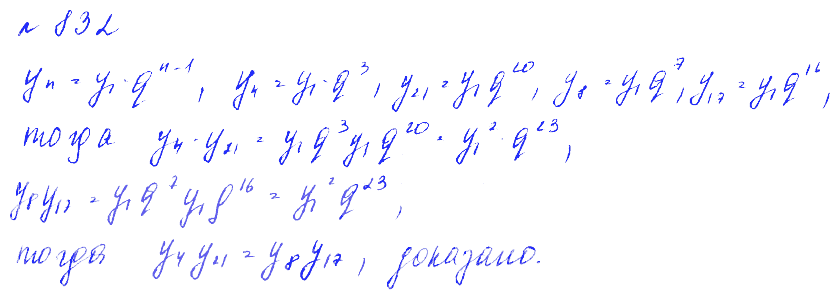 № 832
yₙ = y₁ · qⁿ⁻¹, y₄ = y₁ · q³, y₂₁ = y₁q²⁰, y₈ = y₁q⁷, y₁₇ = y₁q¹⁶,
тогда y₄ · y₂₁ = y₁q³y₁q²⁰ = y₁² · q²³,
y₈y₁₇ = y₁q⁷y₁q¹⁶ = y₁²q²³,
тогда y₄y₂₁ = y₈y₁₇, доказано.